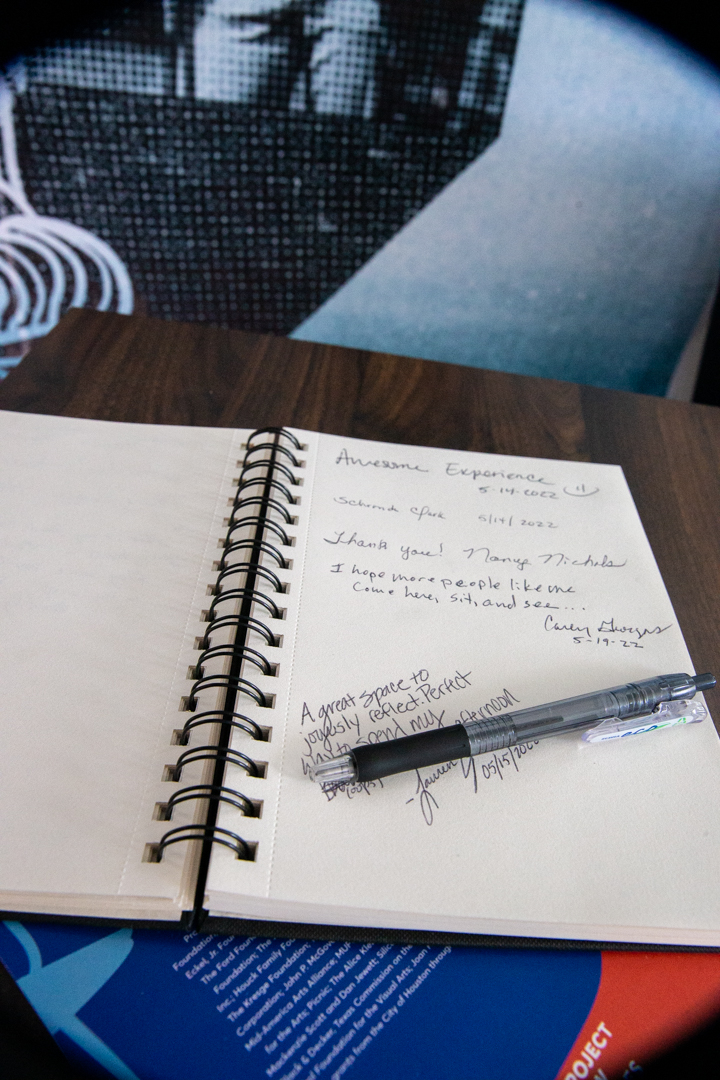 Awesome Experience
5-14-2022
5/14/2022
Thank you! Nancy Nichols
I hope more people like me
Come here, sit, and see...
Carey
5-19-22
A great space to
joyously reflect. Perfect
way to spend my afternoon
(oops)
- Lauren
05/15/202
Foundation
Eckel, Jr. Fou
The Ford Foun
Foundation; The
Inc.; Houck Family Fou
The Kresge Foundation;
Corporation; John P. McGov
Mid-America Arts Alliance; MUF
for the Arts; Picnic; The Alice Kle
Mackenzie Scott and Dan Jewett; Sil
& Decker; Texas Commission on the
Foundation for the Visual Arts; Joan
grants from the City of Houston throug
OJECT